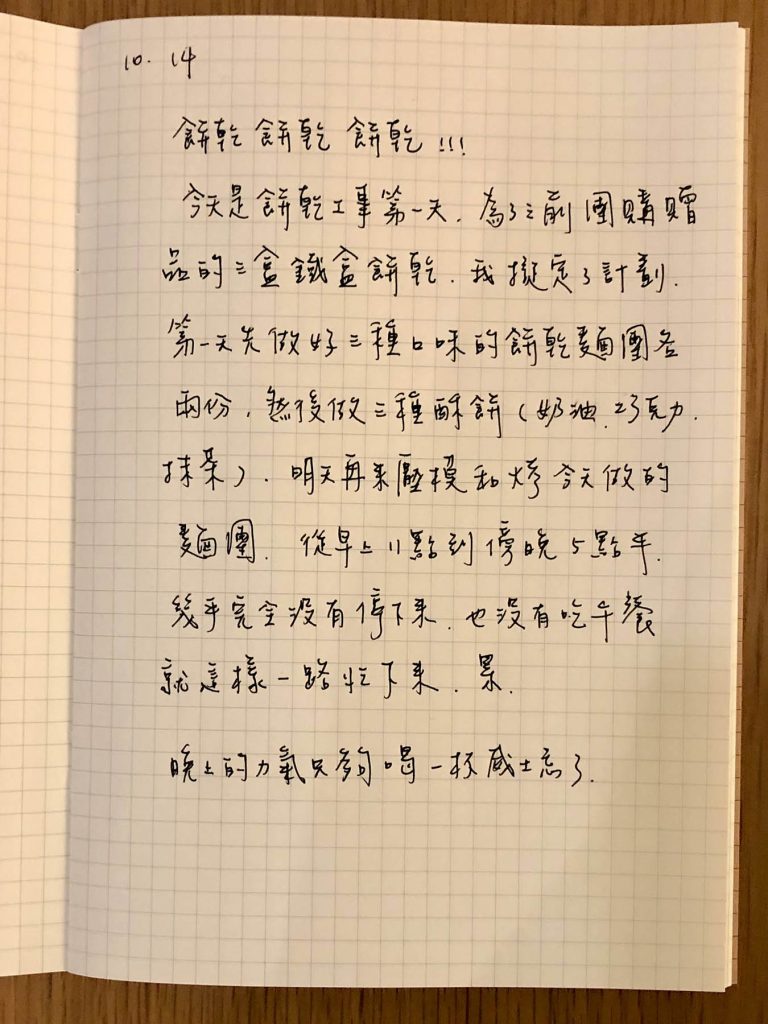 10. 14
餅乾 餅乾 餅乾 !!!
今天是餅乾工事第一天. 為了之前團購贈
品的三盒鐵盒餅乾. 我擬定了計劃.
第一天先做好三種口味的餅乾麵團各
兩份, 然後做三種酥餅(奶油.巧克力.
抹茶). 明天再來壓模和烤今天做的
麵團. 從早上11點到傍晚5點半.
幾乎完全沒有停下來. 也沒有吃午餐
就這樣一路忙下來. 累.
晚上的力氣只夠喝一杯威士忌了.